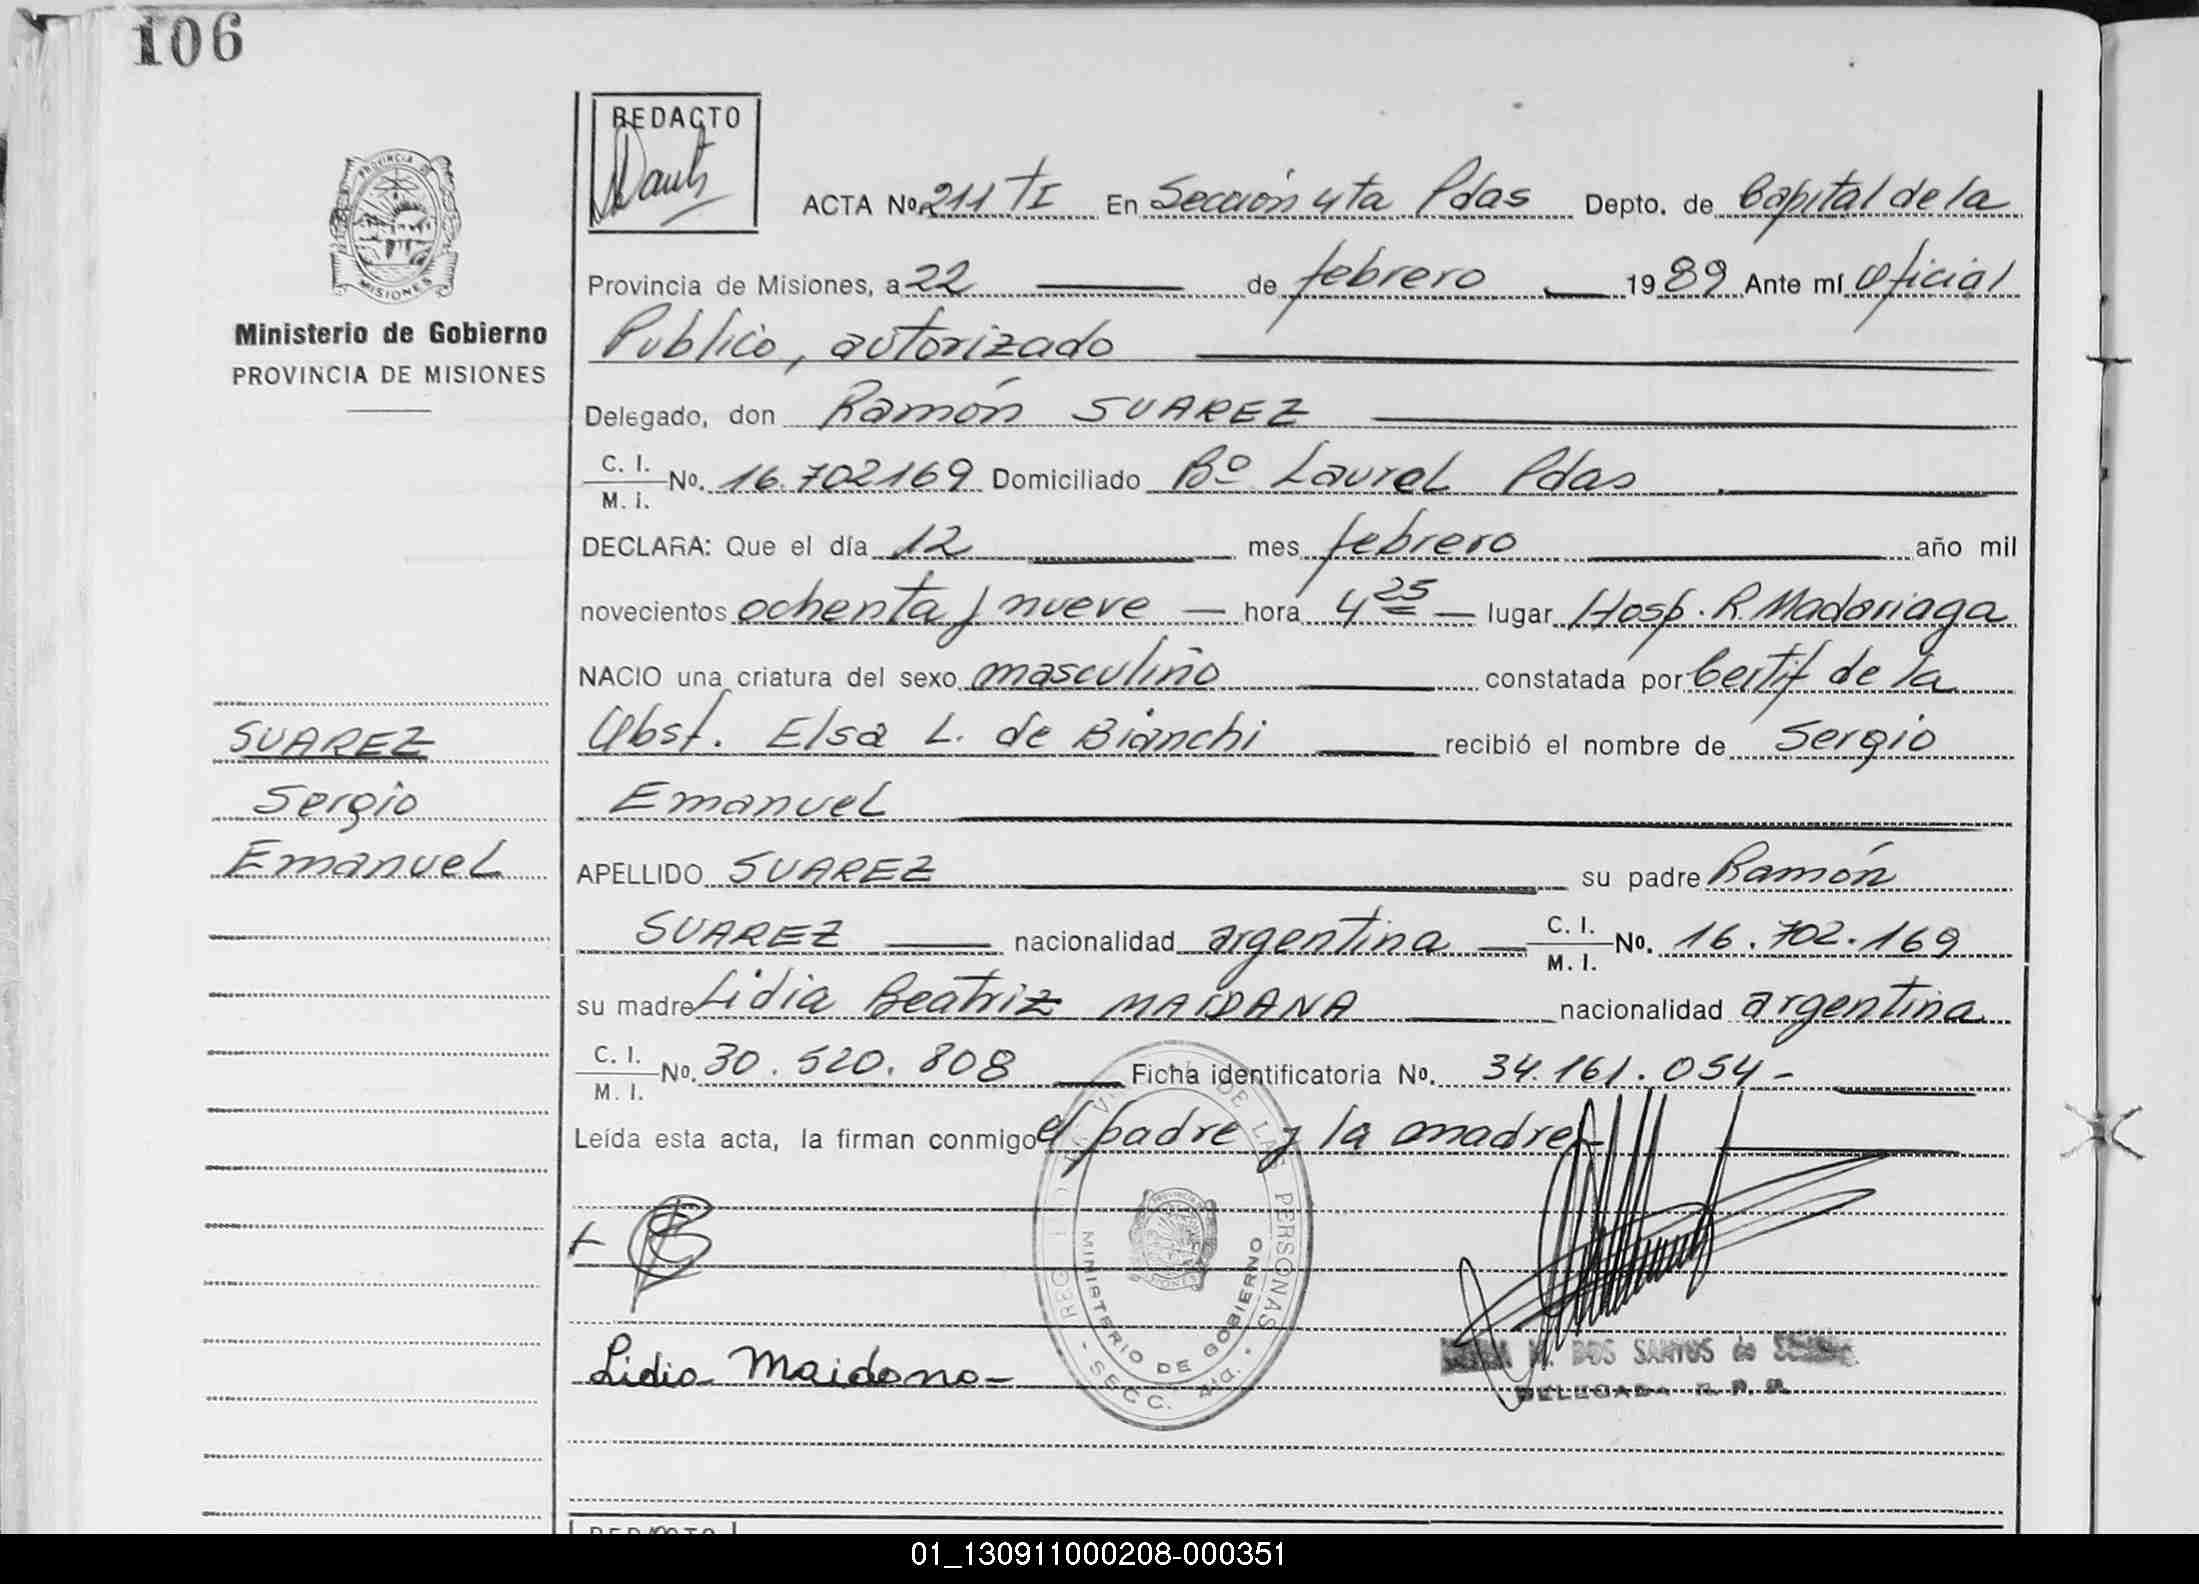 106
REDACTO
PROVINCIA DE
MISIONES
Ministerio de Gobierno
PROVINCIA DE MISIONES
ACTA No. 211 TI En Sección 4ta Pdas Depto. de Capital de la
Provincia de Misiones, a 22 de febrero 1989 Ante mí Oficial
Publico, autorizado
Delegado, don Ramón SUAREZ
C. I.
M. I. No. 16.702169 Domiciliado Bº Laurel Pdas
DECLARA: Que el día 12 mes febrero año mil
novecientos ochenta y nueve hora 4 25 lugar Hosp. R. Madariaga
NACIO una criatura del sexo masculino constatada por Certif de la
Obst. Elsa L. de Bianchi recibió el nombre de Sergio
Emanuel
SUAREZ
Sergio
Emanuel
APELLIDO SUAREZ su padre Ramón
SUAREZ nacionalidad argentina C. I.
M. I. No. 16.702.169
su madre Lidia Beatriz MAIDANA nacionalidad argentina
C. I.
M. I. No. 30.520.808 Ficha identificatoria No. 34.161.054-
Leída esta acta, la firman conmigo el padre y la madre
DE LAS PERSONAS
MINISTERIO DE GOBIERNO
SECC. 4ta.
Lidia Maidana
M. DOS SANTOS de
DELEGADA R. P.
REDACTO
01_130911000208-000351